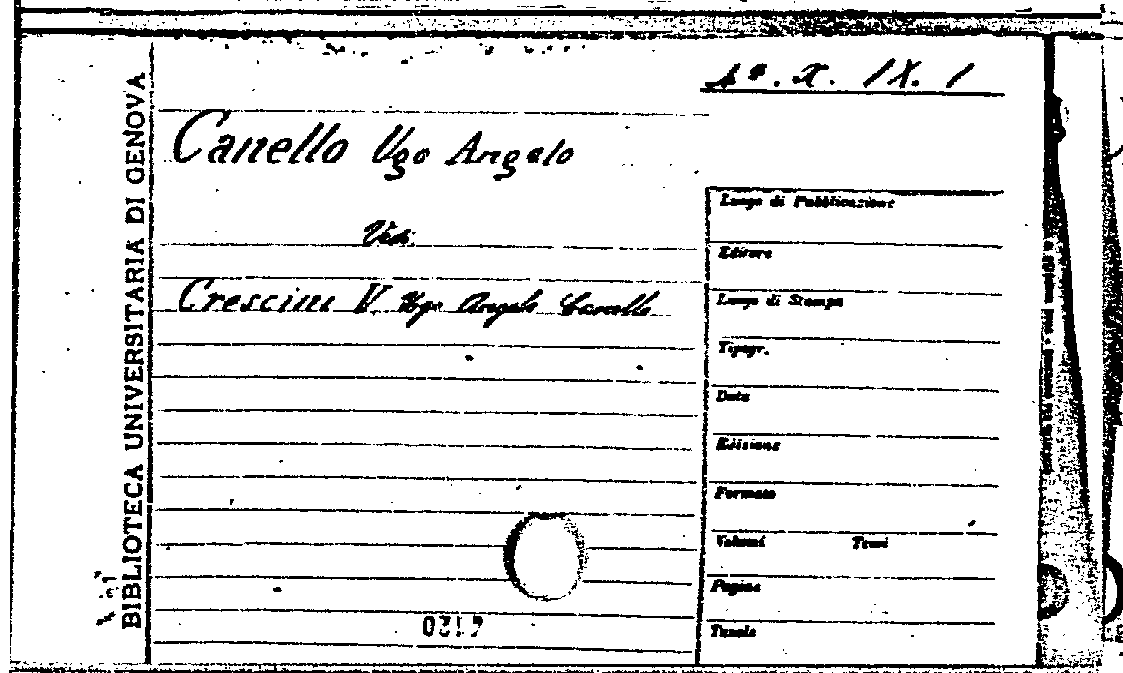 BIBLIOTECA UNIVERSITARIA DI GENOVA
4ª. X. IX. 1
Canello Ugo Angelo
Vedi
Crescini V. Ugo Angelo Canello
Luogo di Pubblicazione
Editore
Luogo di Stampa
Tipogr.
Data
Edizione
Formato
Volumi Tomi
Pagine
Tavole